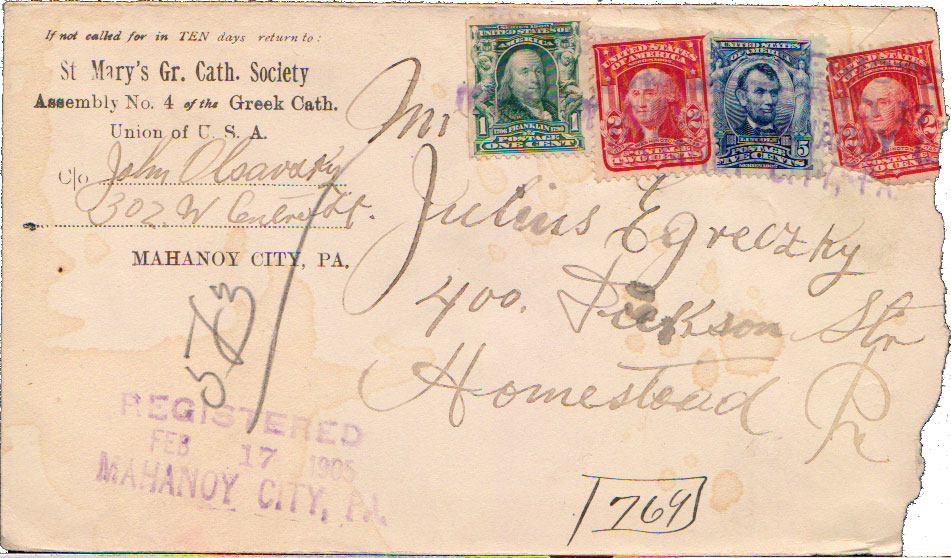 If not called for in TEN days return to:
St Mary's Gr. Cath. Society
Assembly No. 4 of the Greek Cath.
Union of U. S. A.
C/o John Olsavszky
302 W Centre St.
MAHANOY CITY, PA.
UNITED STATES OF AMERICA
1706 FRANKLIN 1790
1 1
POSTAGE
ONE CENT
UNITED STATES OF AMERICA
2 2
POSTAGE
TWO CENTS
UNITED STATES OF AMERICA
LINCOLN
5
POSTAGE
FIVE CENTS
UNITED STATES OF AMERICA
2 2
POSTAGE
TWO CENTS
Mr
Julius Egreczky
400. Dickson Str
Homestead Pa
REGISTERED
FEB 17 1905
MAHANOY CITY, PA.
769